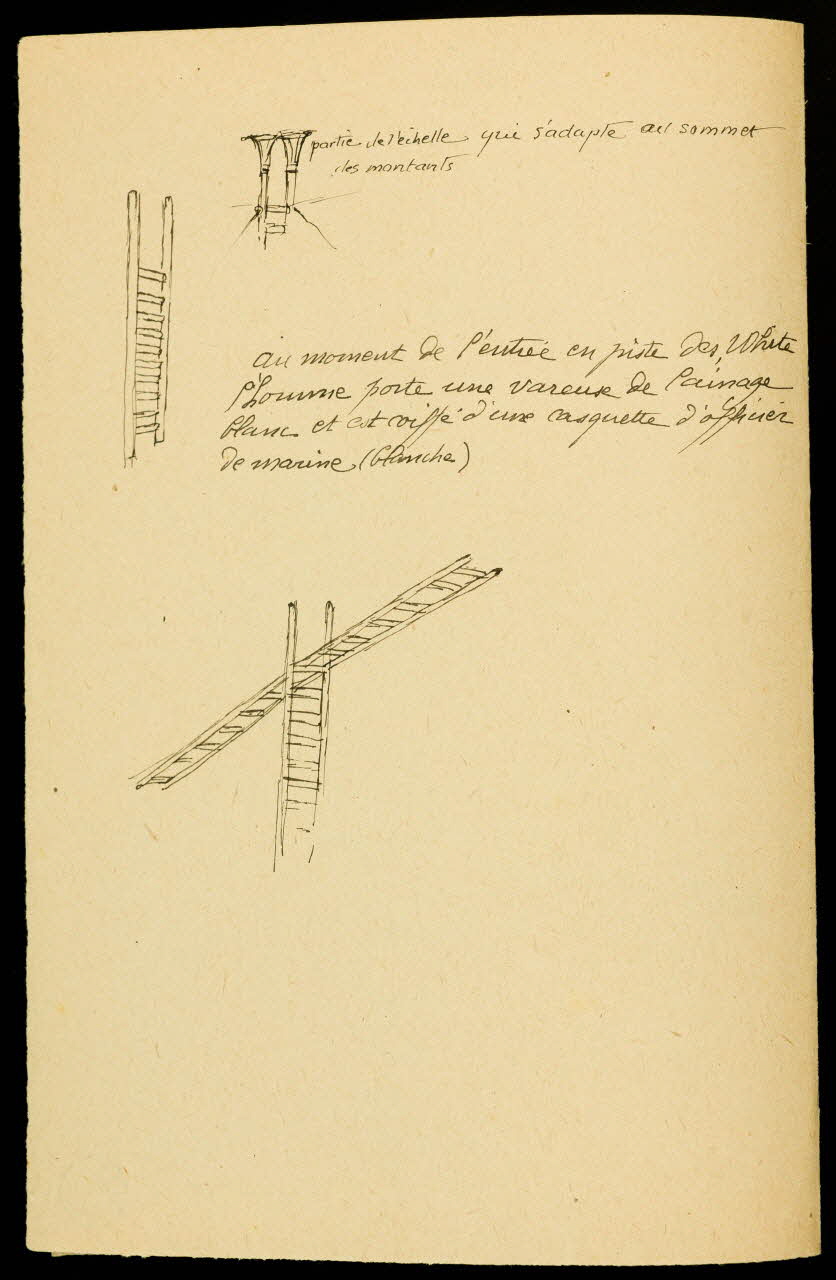 partie de l'échelle qui s'adapte au sommet
des montants
au moment de l'entrée en piste des White
l'homme porte une vareuse de lainage
blanc et est coiffé d'une casquette d'officier
de marine (blanche)